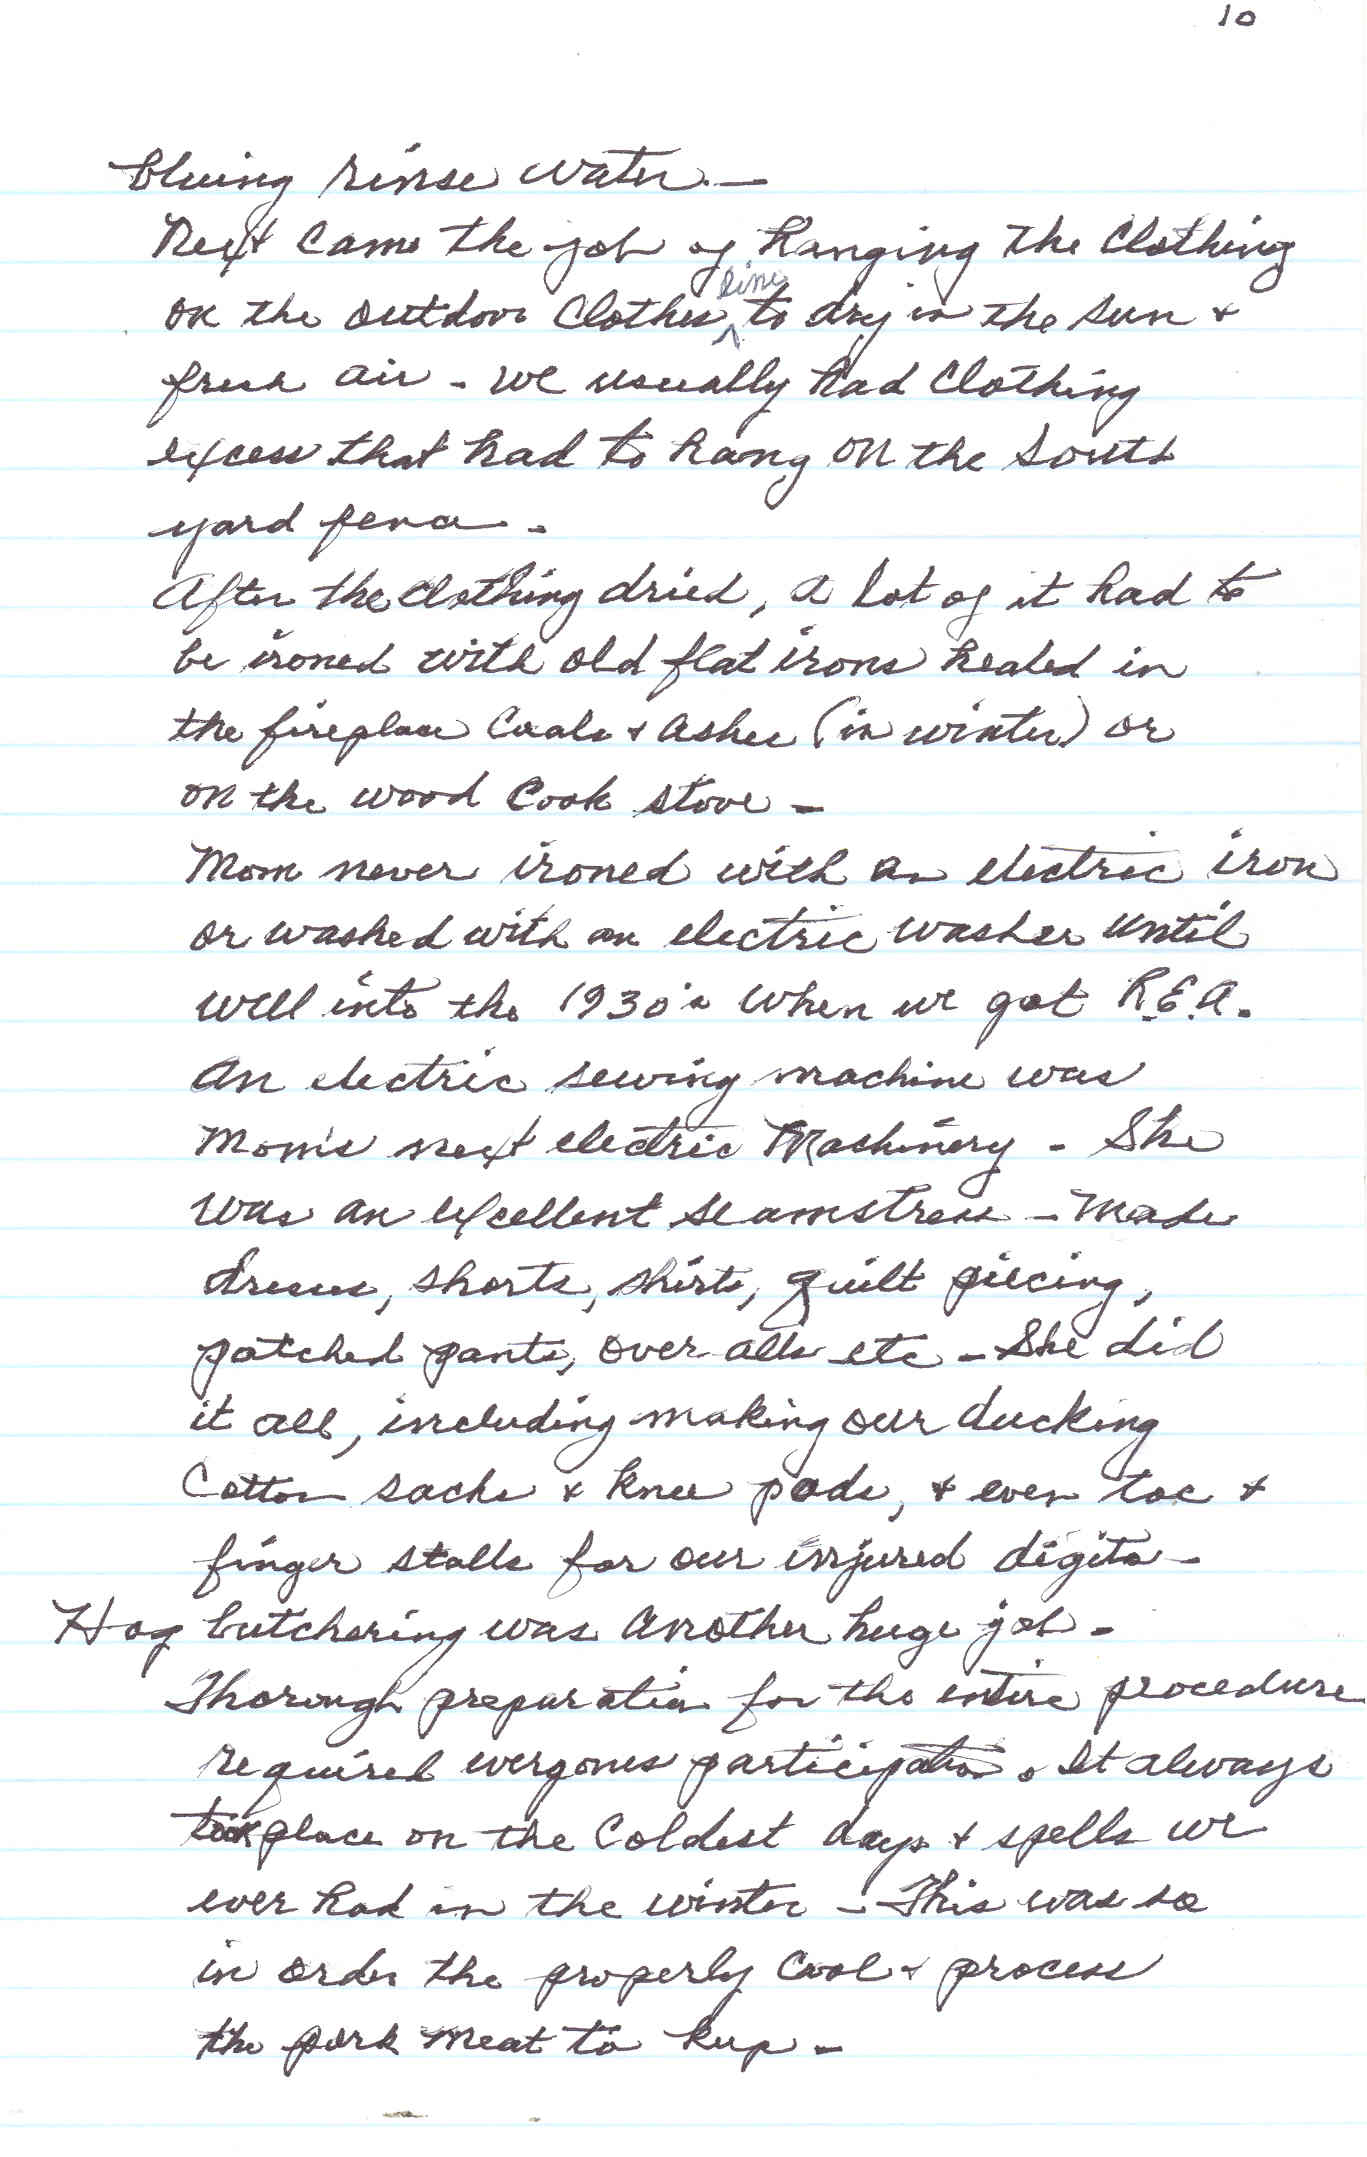 10
bluing rinse water. —
Next came the job of hanging the clothing
on the outdoor clothes line to dry in the sun &
fresh air - we usually had clothing
excess that had to hang on the south
yard fence -
After the clothing dried, a lot of it had to
be ironed with old flat irons heated in
the fireplace coals & ashes (in winter) or
on the wood cook stove -
Mom never ironed with an electric iron
or washed with an electric washer until
well into the 1930's when we got R.E.A.
An electric sewing machine was
Mom's next electric Machinery - She
was an excellent seamstress - Made
dresses, shorts, shirts, quilt piecing,
patched pants, over-alls etc - She did
it all, including making our ducking
Cotton sacks & knee pads, & even toe &
finger stalls for our injured digits -
Hog butchering was another huge job -
Thorough preparation for the entire procedure
required everyones participation. It always
took place on the coldest days & spells we
ever had in the winter - This was so
in order the properly cool & process
the pork meat to keep -